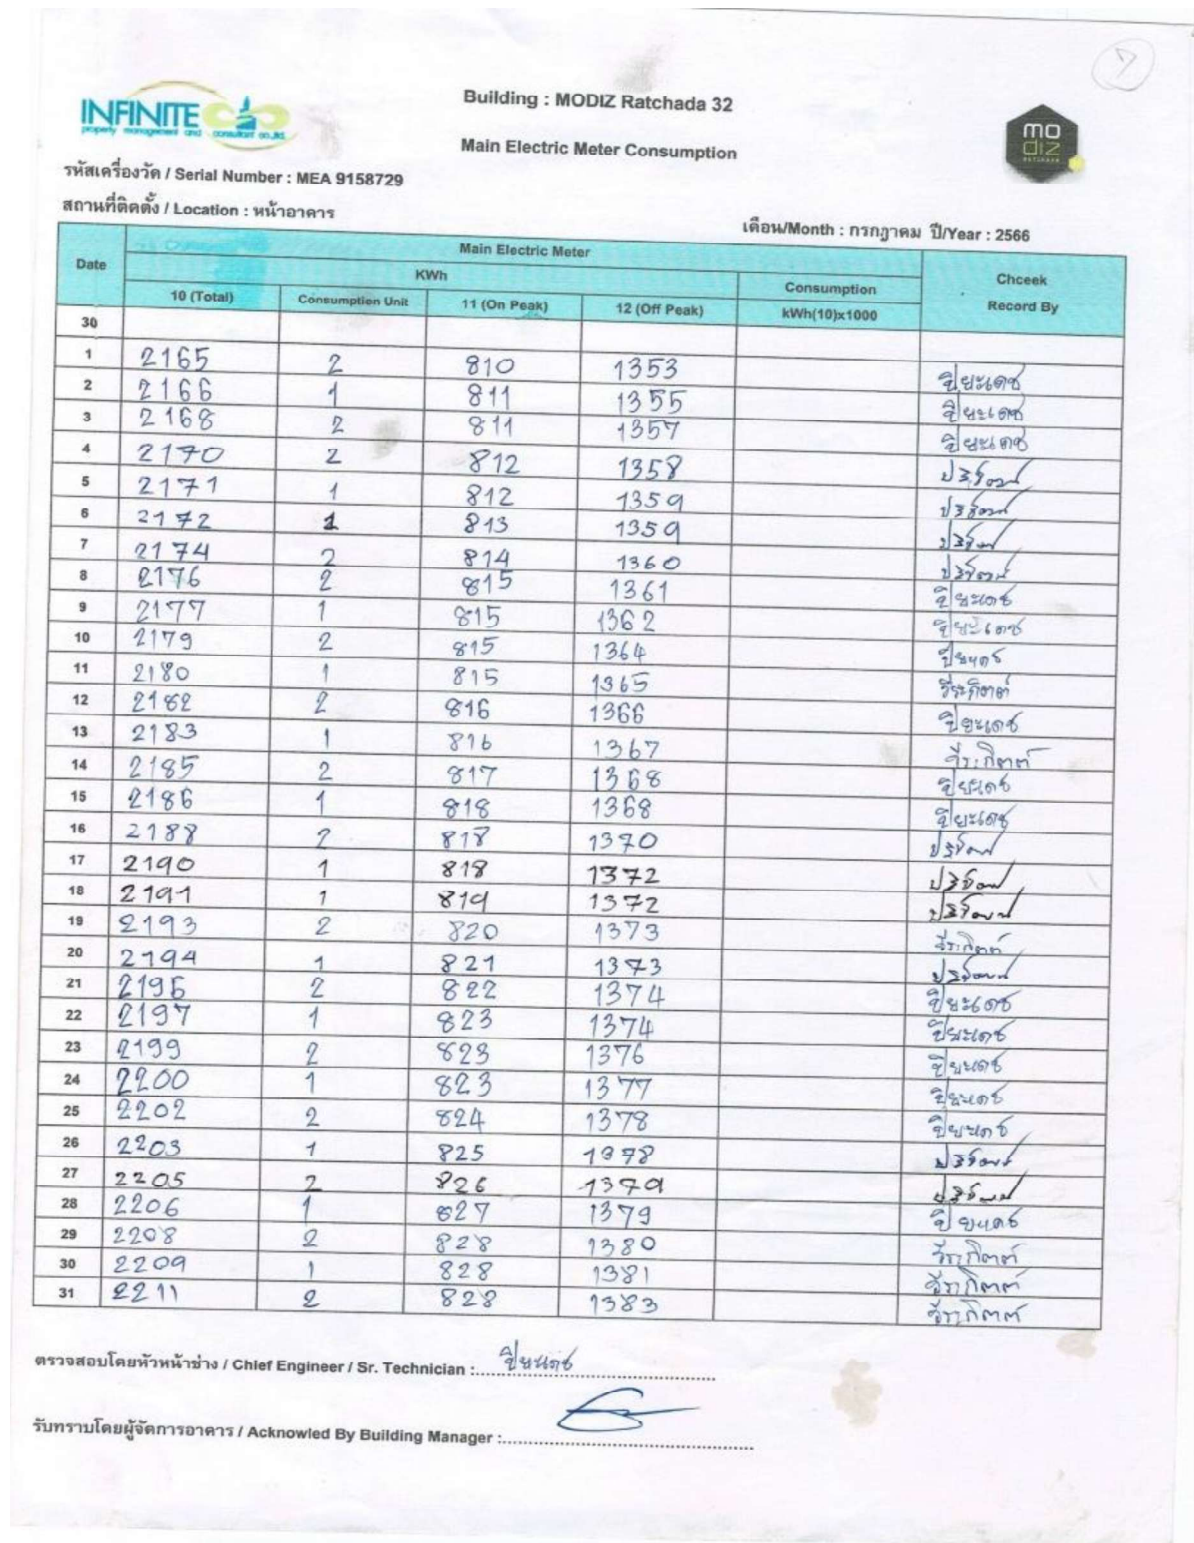 7
INFINITE
property management and consultant co.,ltd.
Building : MODIZ Ratchada 32
Main Electric Meter Consumption
mo
diz
RATCHADA
รหัสเครื่องวัด / Serial Number : MEA 9158729
สถานที่ติดตั้ง / Location : หน้าอาคาร
เดือน/Month : กรกฎาคม ปี/Year : 2566
Date Main Electric Meter Chceek Record By
KWh Consumption
10 (Total) Consumption Unit 11 (On Peak) 12 (Off Peak) kWh(10)x1000
30
1 2165 2 810 1353 ปิยะเดช
2 2166 1 811 1355 ปิยะเดช
3 2168 2 811 1357 ปิยะเดช
4 2170 2 812 1358
5 2171 1 812 1359
6 2172 1 813 1359
7 2174 2 814 1360
8 2176 2 815 1361 ปิยะเดช
9 2177 1 815 1362 ปิยะเดช
10 2179 2 815 1364 ปิยะเดช
11 2180 1 815 1365 วีระกิตต์
12 2182 2 816 1366 ปิยะเดช
13 2183 1 816 1367 วีระกิตต์
14 2185 2 817 1368 ปิยะเดช
15 2186 1 818 1368 ปิยะเดช
16 2188 2 818 1370
17 2190 1 818 1372
18 2191 1 819 1372
19 2193 2 820 1373 วีระกิตต์
20 2194 1 821 1373
21 2196 2 822 1374 ปิยะเดช
22 2197 1 823 1374 ปิยะเดช
23 2199 2 823 1376 ปิยะเดช
24 2200 1 823 1377 ปิยะเดช
25 2202 2 824 1378 ปิยะเดช
26 2203 1 825 1378
27 2205 2 826 1379
28 2206 1 827 1379 ปิยะเดช
29 2208 2 828 1380 วีระกิตต์
30 2209 1 828 1381 วีระกิตต์
31 2211 2 828 1383 วีระกิตต์
ตรวจสอบโดยหัวหน้าช่าง / Chief Engineer / Sr. Technician : ปิยะเดช
รับทราบโดยผู้จัดการอาคาร / Acknowled By Building Manager :